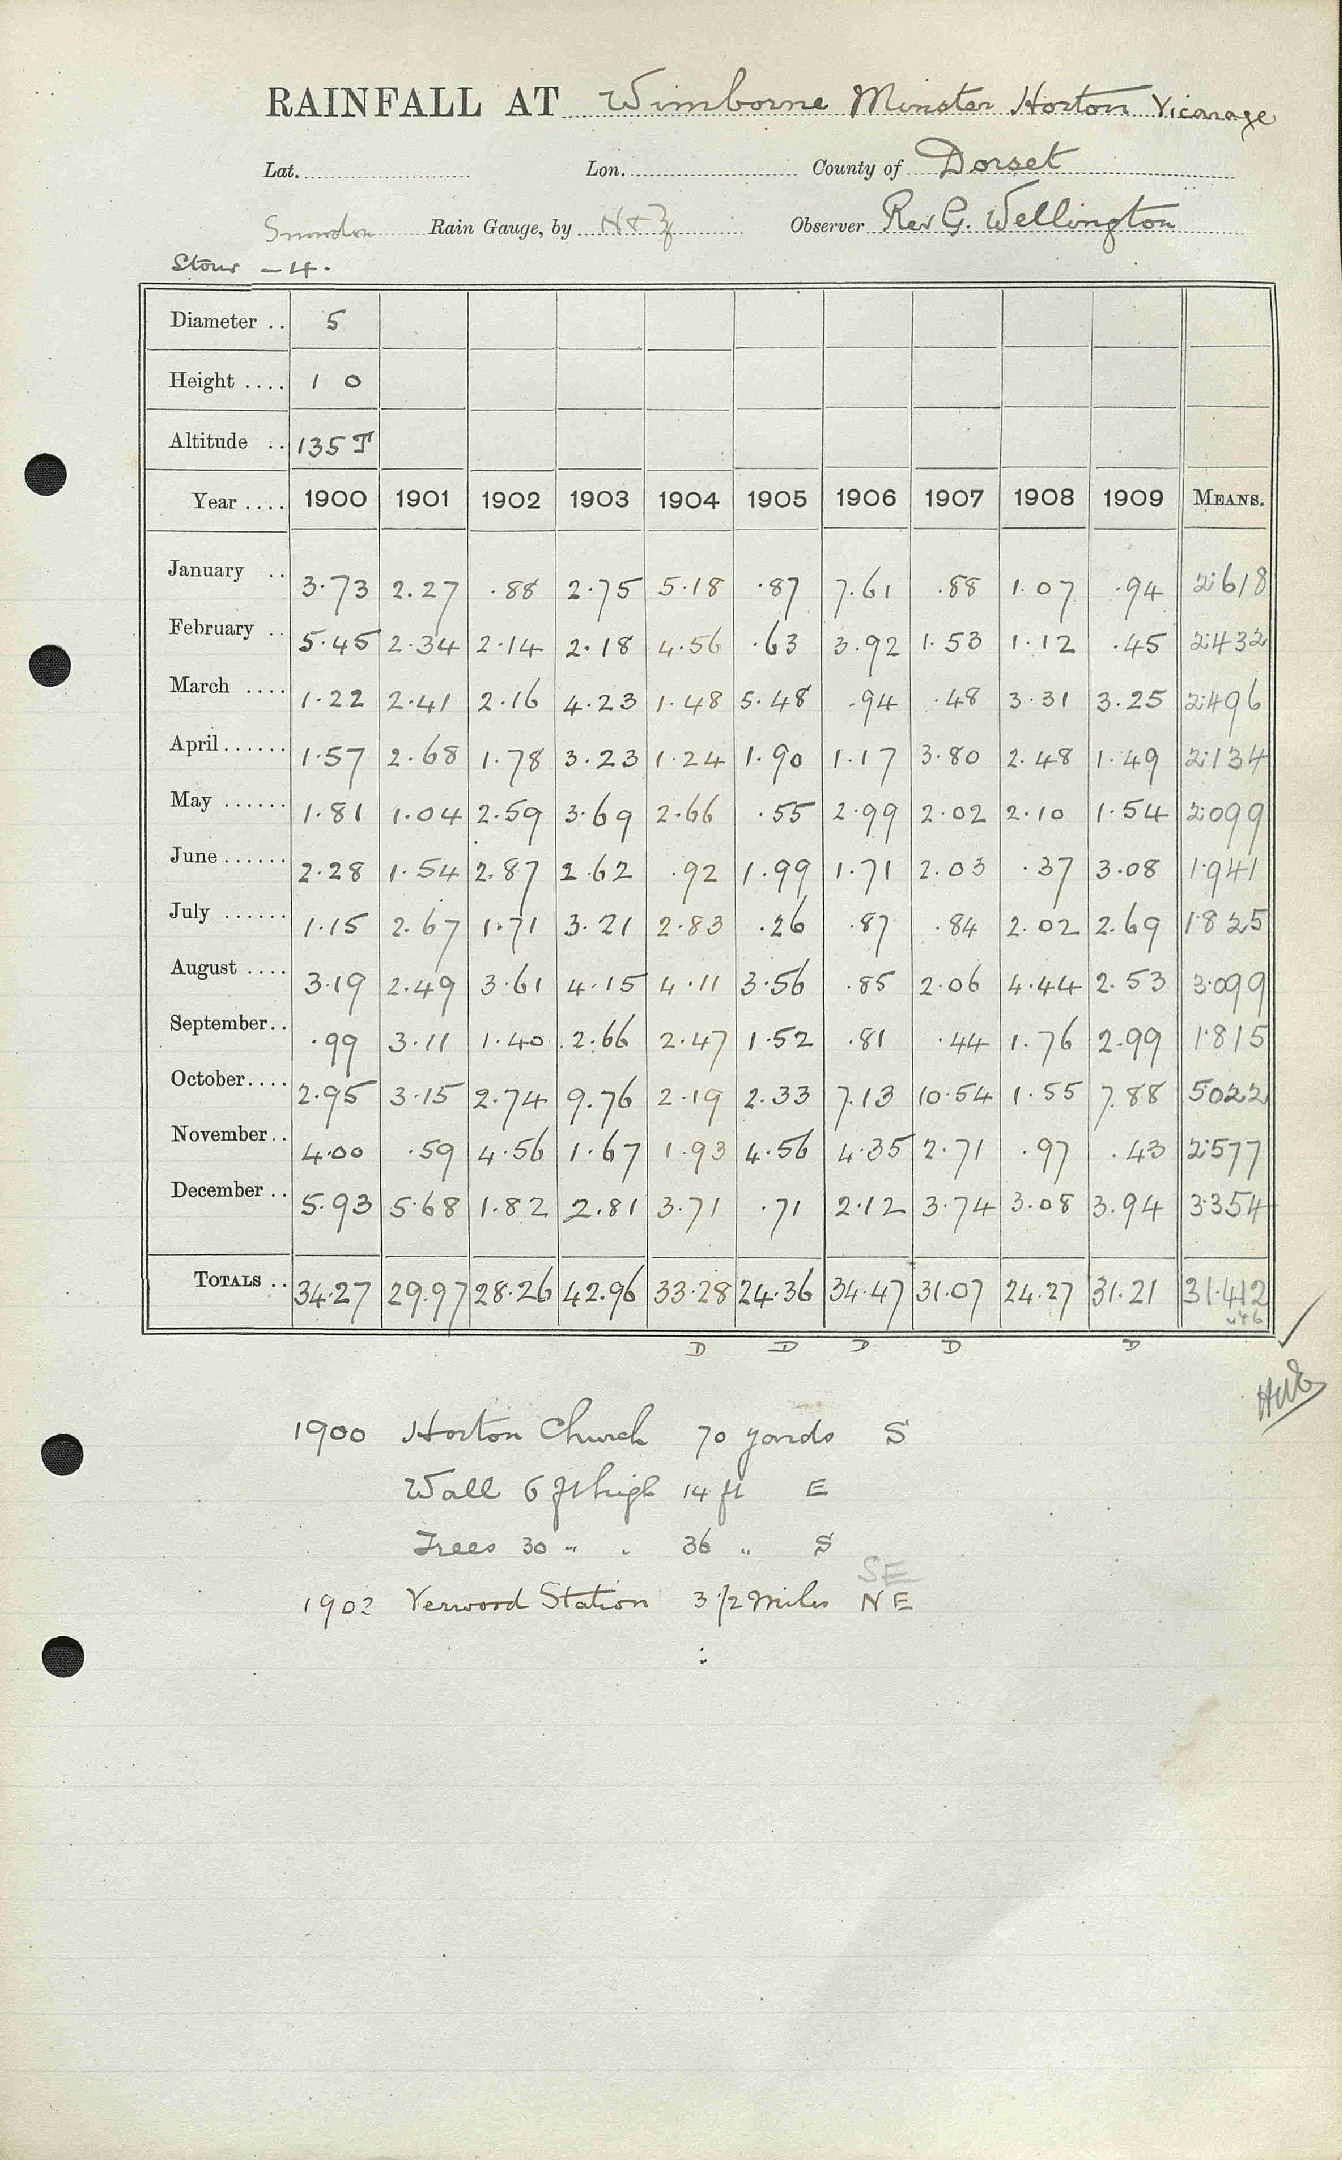 RAINFALL AT Wimborne Minster Horton Vicarage
Lat. Lon. County of Dorset
Snowdon Rain Gauge, by N & Z Observer Rev G. Wellington
Stour - 4.
Diameter .. 5
Height .... 1 0
Altitude .. 135 T
Year .... 1900 1901 1902 1903 1904 1905 1906 1907 1908 1909 MEANS.
January .. 3.73 2.27 .88 2.75 5.18 .87 7.61 .88 1.07 .94 2.618
February .. 5.45 2.34 2.14 2.18 4.56 .63 3.92 1.53 1.12 .45 2.432
March .... 1.22 2.41 2.16 4.23 1.48 5.48 .94 .48 3.31 3.25 2.496
April ...... 1.57 2.68 1.78 3.23 1.24 1.90 1.17 3.80 2.48 1.49 2.134
May ...... 1.81 1.04 2.59 3.69 2.66 .55 2.99 2.02 2.10 1.54 2.099
June ...... 2.28 1.54 2.87 2.62 .92 1.99 1.71 2.03 .37 3.08 1.941
July ...... 1.15 2.67 1.71 3.21 2.83 .26 .87 .84 2.02 2.69 1.825
August .... 3.19 2.49 3.61 4.15 4.11 3.56 .85 2.06 4.44 2.53 3.099
September.. .99 3.11 1.40 2.66 2.47 1.52 .81 .44 1.76 2.99 1.815
October.... 2.95 3.15 2.74 9.76 2.19 2.33 7.13 10.54 1.55 7.88 5.022
November.. 4.00 .59 4.56 1.67 1.93 4.56 4.35 2.71 .97 .43 2.577
December .. 5.93 5.68 1.82 2.81 3.71 .71 2.12 3.74 3.08 3.94 3.354
TOTALS .. 34.27 29.97 28.26 42.96 33.28 24.36 34.47 31.07 24.27 31.21 31.412
D D D D D
1900 Horton Church 70 yards S
Wall 6 ft high 14 ft E
Trees 30 " " 36 " S
SE
1902 Verwood Station 3 1/2 Miles NE